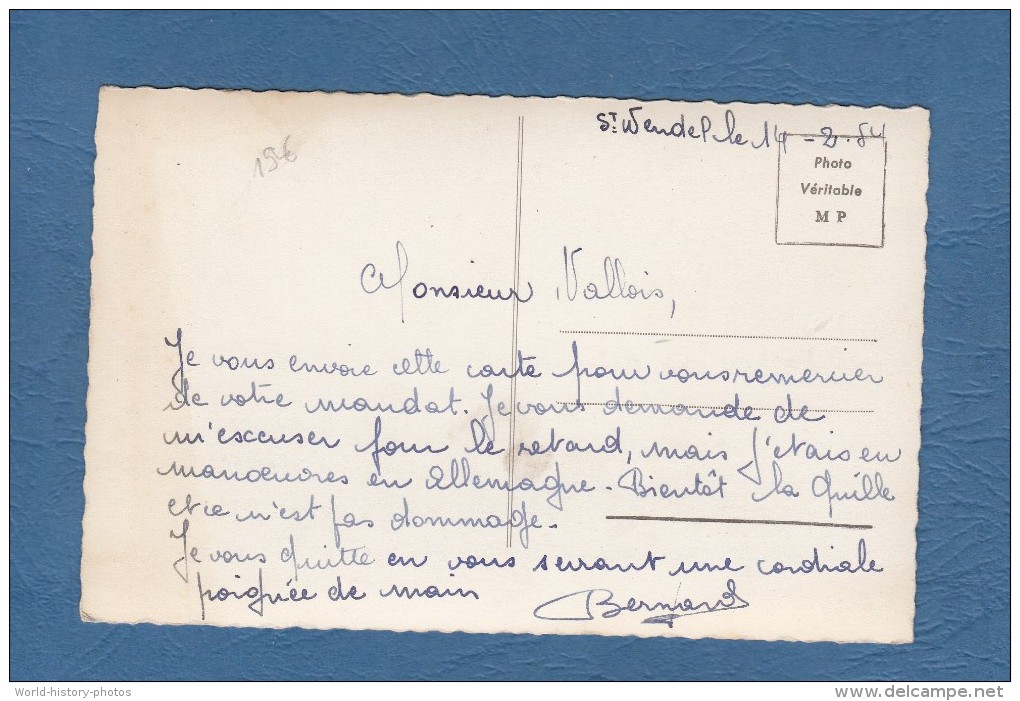 St Wendel le 14-2-54
Photo
Véritable
M P
Monsieur Vallois,
Je vous envoie cette carte pour vous remercier
de votre mandat. Je vous demande de
m'excuser pour le retard, mais j'étais en
manoeuvres en Allemagne. Bientôt la Quille
et ce n'est pas dommage.
Je vous quitte en vous serrant une cordiale
poignée de main
Bernard
World-history-photos
http://stwendel.delcampe.net